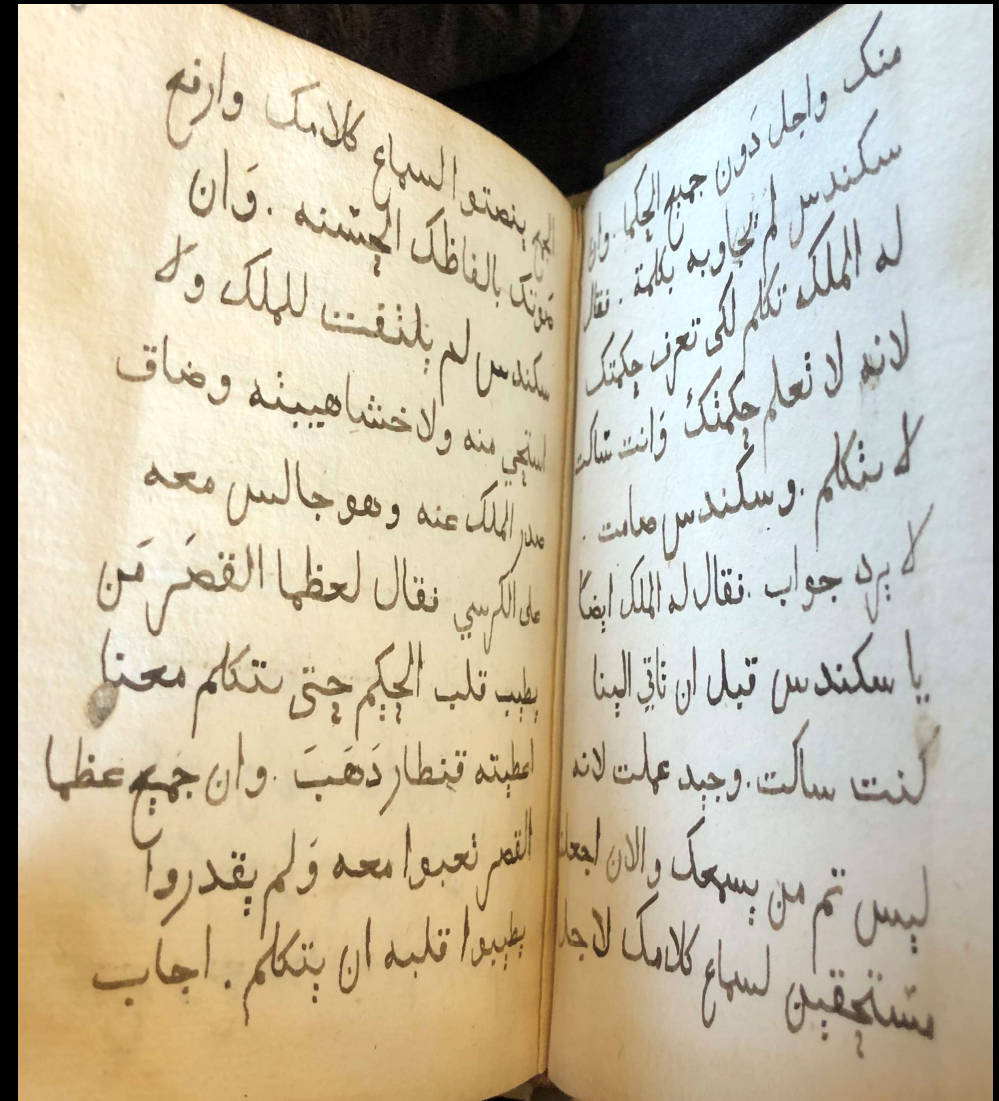 منك واجل دَون جميع الحكما . وان
سكندس لم يجاوبه بكلمة . فقال
له الملك تكلم لكى تعرف حكمتك
لانه لا تعلم حكمتك وَانت ساكت
لا تتكلم . وسكندس صامت .
لا يرد جواب . فقال له الملك ايضًا
يا سكندس قبل ان تاتي الينا
كنت ساكت . وجيد عملت لانه
ليس تم من يسمعك والان اجعلنا
مستحقين لسماع كلامك لاجل
الجمع ينصتوا السماع كلامك وارفع
صَوتك بالفاظك الحسنه . وَان
سكندس لم يلتفت للملك ولا
استحي منه ولا خشا هيبته وضاق
صدر الملك عنه وهو جالس معه
على الكرسي فقال لعظما القصَر مَن
يطيب قلب الحكيم حتى يتكلم معنا
اعطيته قنطار دَهَبَ . وان جميع عظما
القصر تعبوا معه وَلم يقدروا
يطيبوا قلبه ان يتكلم . اجاب